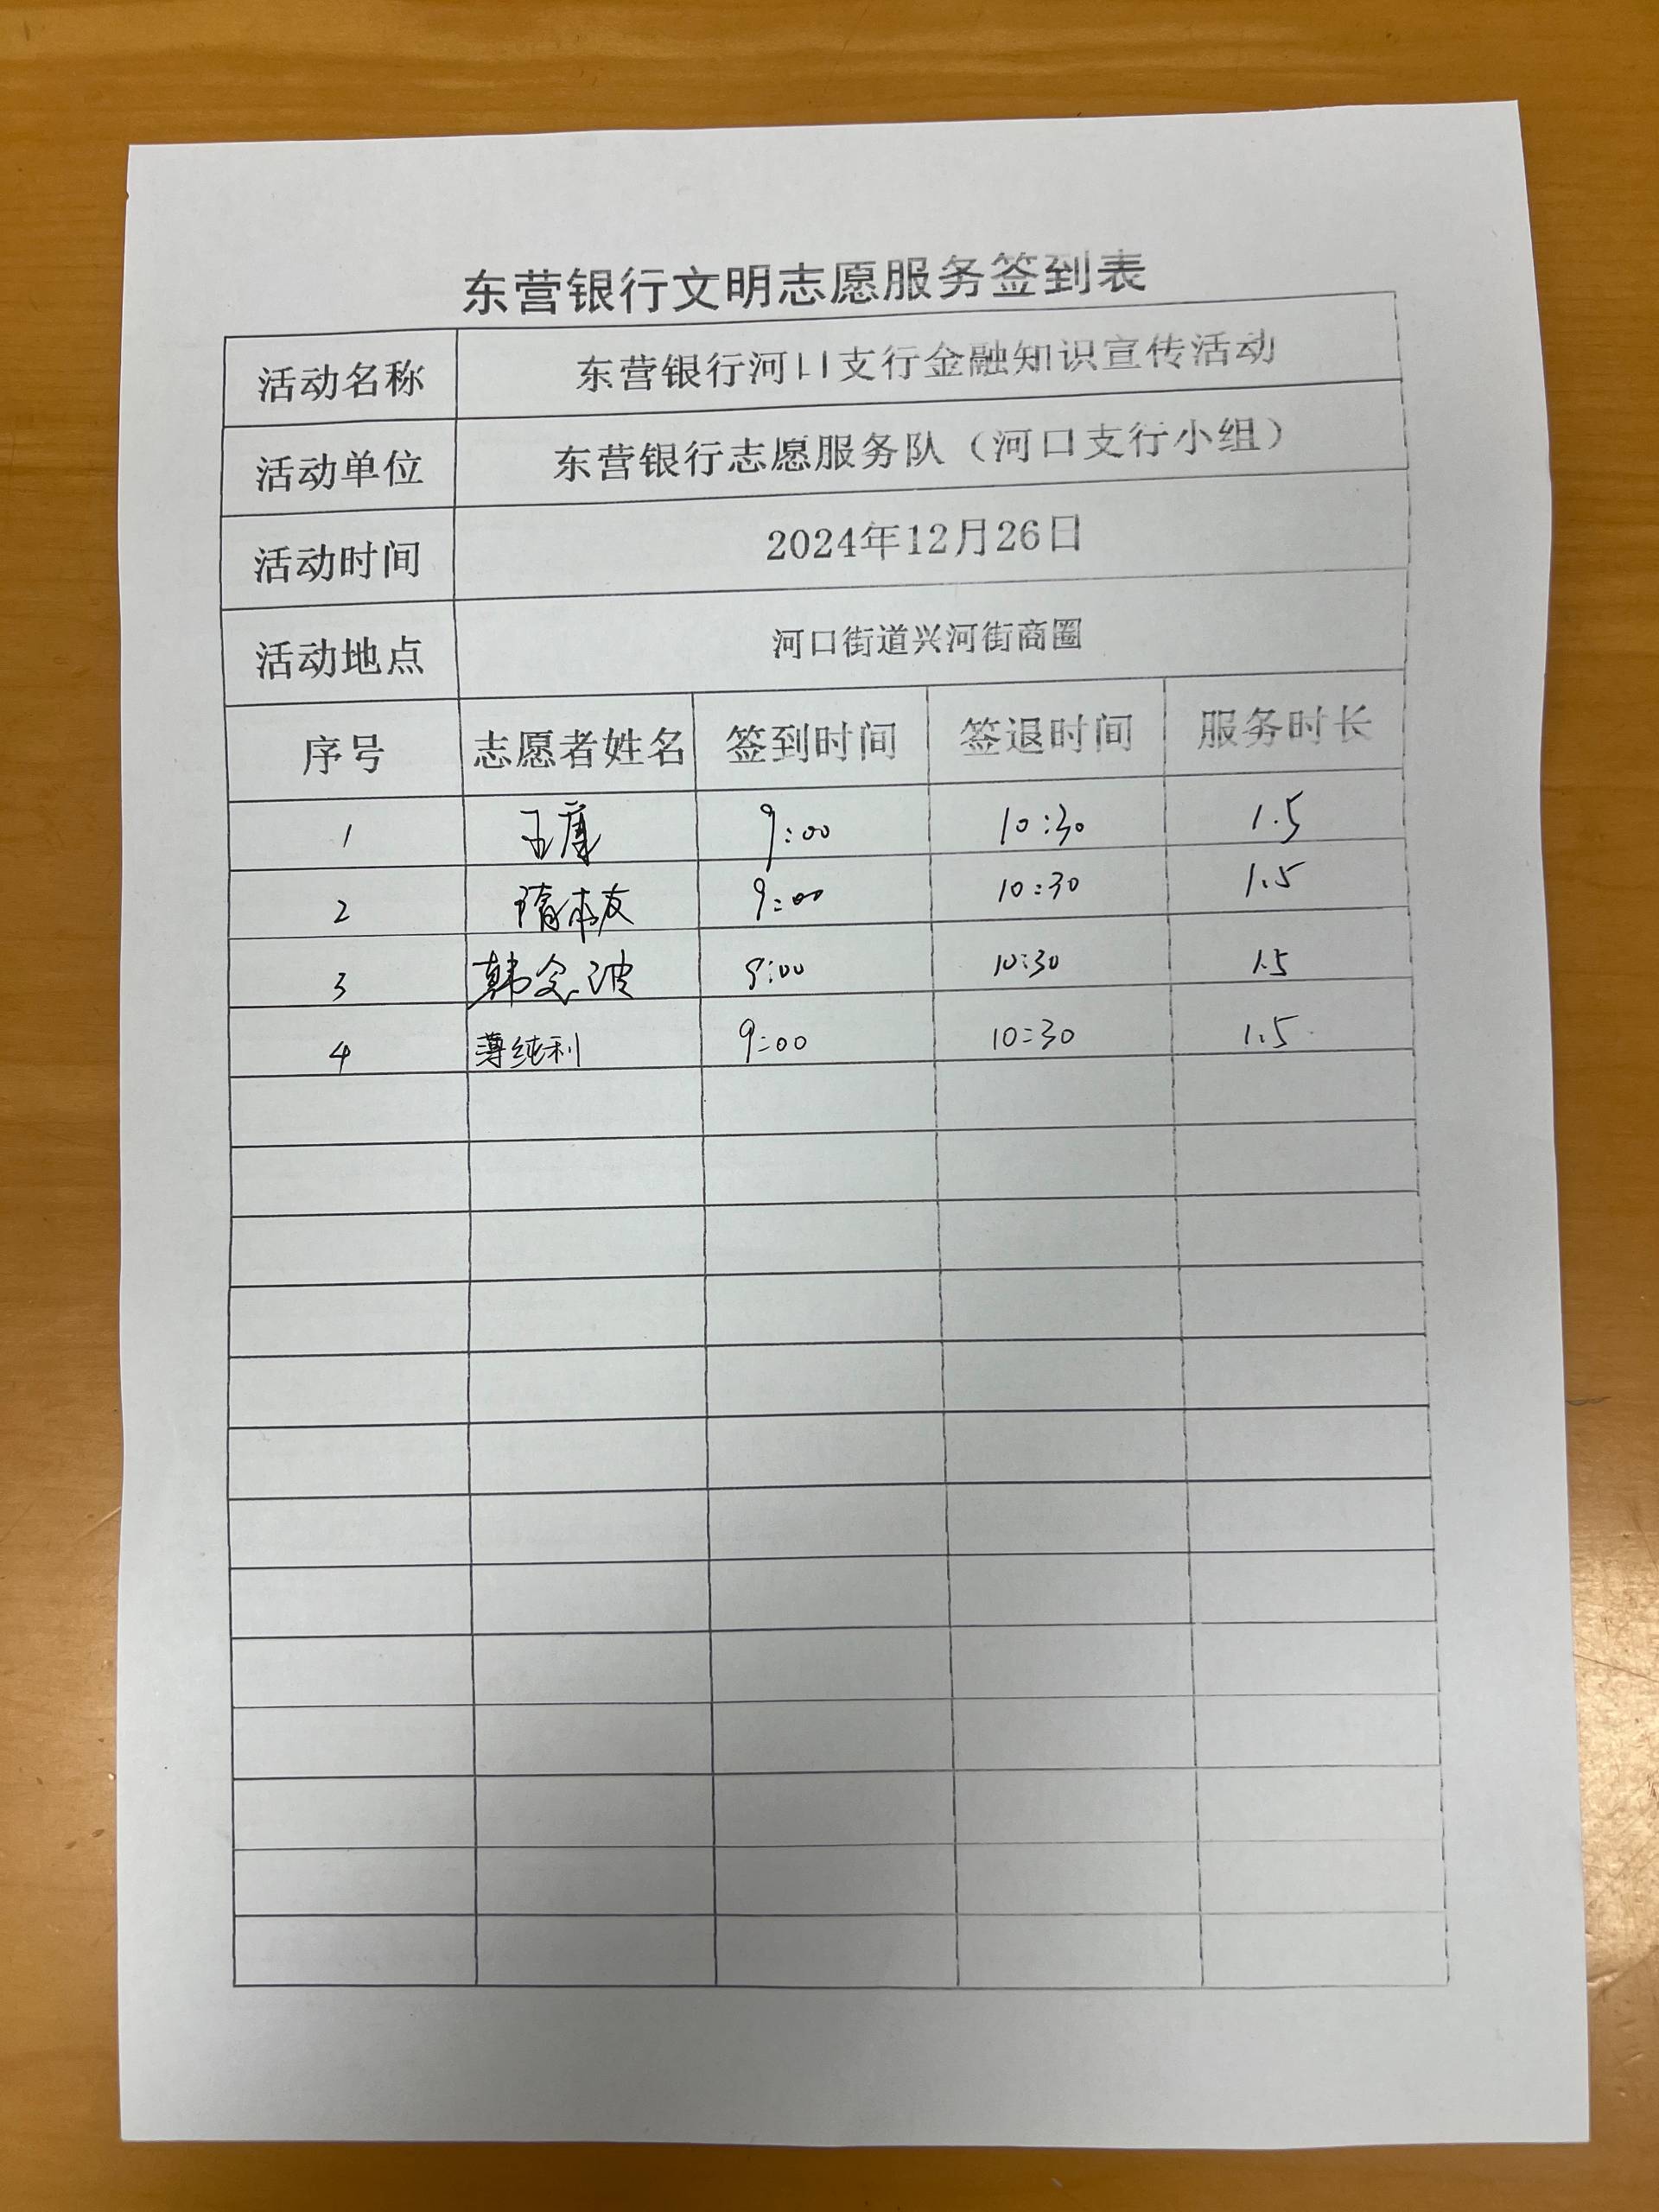 东营银行文明志愿服务签到表
活动名称 东营银行河口支行金融知识宣传活动
活动单位 东营银行志愿服务队（河口支行小组）
活动时间 2024年12月26日
活动地点 河口街道兴河街商圈
序号 志愿者姓名 签到时间 签退时间 服务时长
1 9:00 10:30 1.5
2 9:00 10:30 1.5
3 韩念波 9:00 10:30 1.5
4 薄纯利 9:00 10:30 1.5